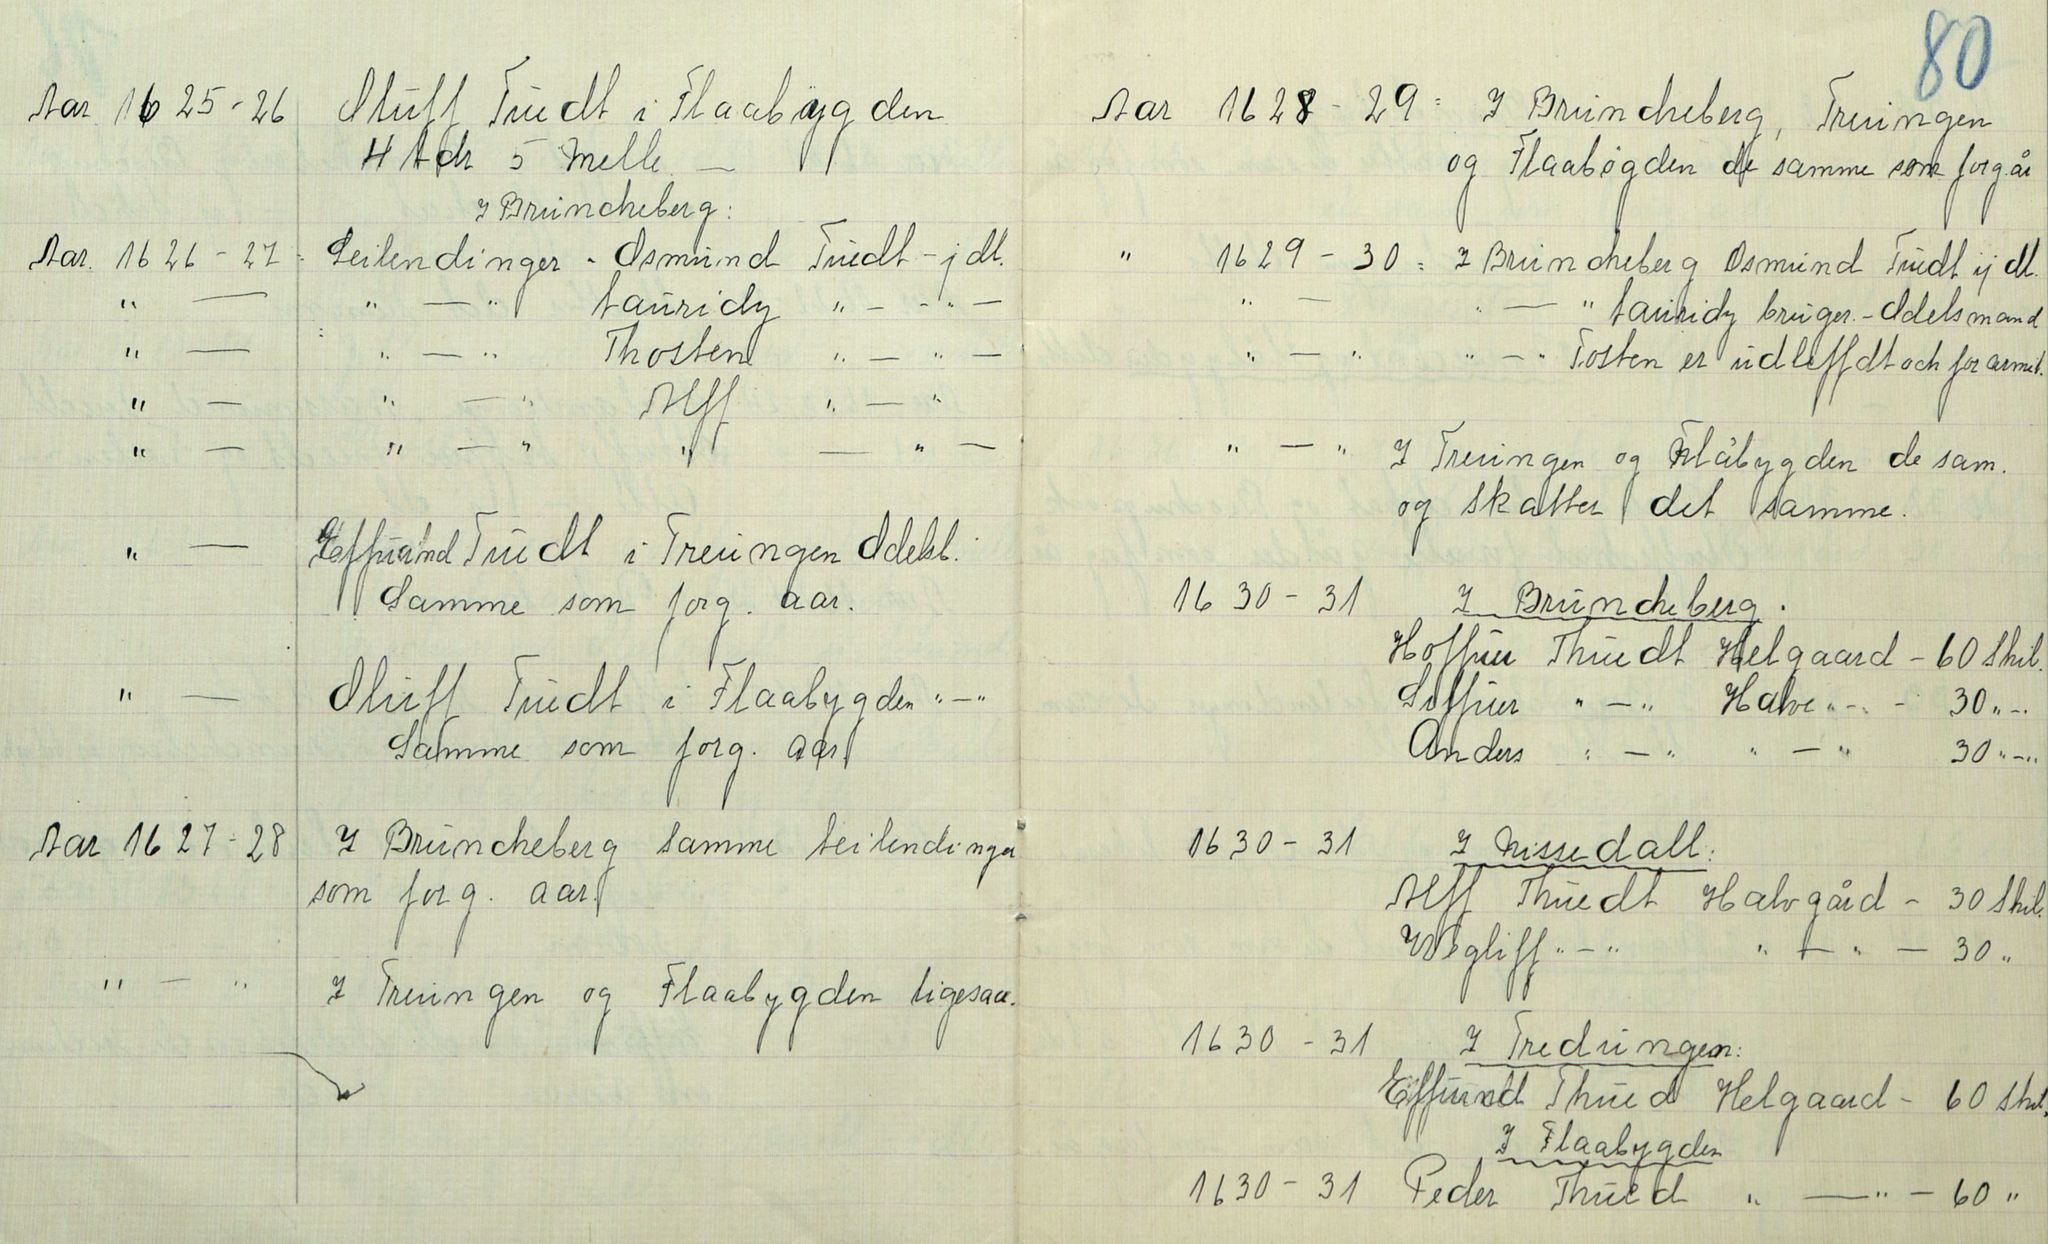 Aar 1625-26 Oluff Tuedt i Flaabygden
4 Adr 5 Melle —
I Brunckeberg:
Aar. 1626-27 : Leilendinger - Osmund Tuedt - j dt.
" — " — " Lauridz " - - " -
" — " — " Thosten " — " —
" — " — " Alff " — "
" — " — " " — " —
" — Effuind Tuedt i Treungen Odelst.
Samme som forg. aar.
" — Oluff Tuedt i Flaabygden "-"
Samme som forg. aar
Aar 1627-28 I Brunckeberg samme Leilendinger
som forg. aar.
" — " I Treungen og Flaabygden ligesaa.
80
Aar 1628-29 : I Brunckeberg, Treungen
og Flaabøgden de samme som forg år
" 1629-30 : I Brunckeberg Osmund Tuedt ij dt.
" — " — " Lauridz bruger. - Odelsmand
" — " " — " Tosten er udleffdt och forarmet.
" — " I Treungen og Flåbygden de sam.
og skatter det samme.
1630-31 I Brunckeberg.
Hoffuer Thuedt Helgaard - 60 Skil.
Siffuer " — " Halve "-" - 30 "-"
Anders " — " " — " 30 "-"
1630-31 I Nissedall:
Alff Thuedt Halvgård - 30 Skil.
Wegliff "-" " — " — 30 "
1630-31 I Tredungen:
Effuind Thued Helgaard - 60 Skil.
I Flaabygden
1630-31 Peder Thued " — " - 60 "